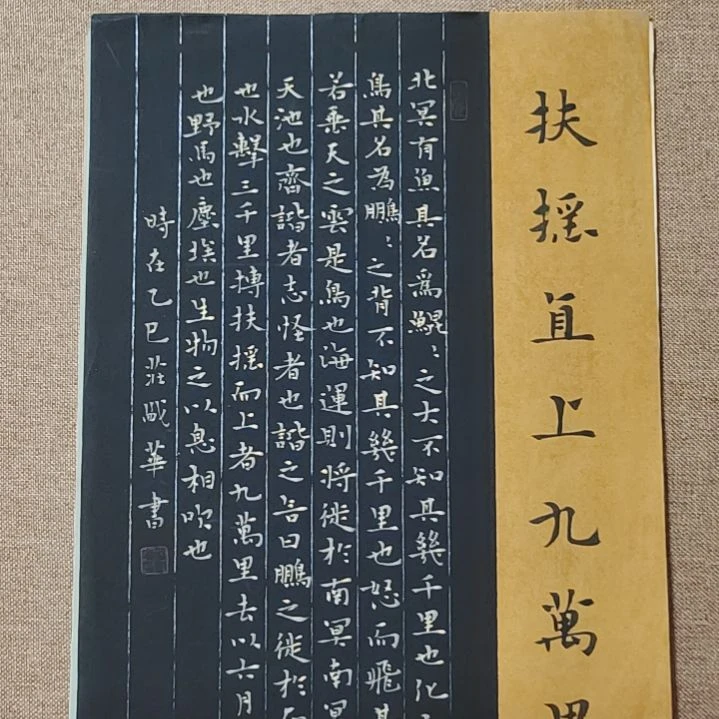 扶摇直上九萬里
北冥有魚其名爲鯤：之大不知其幾千里也化
鳥其名為鵬：之背不知其幾千里也怒而飛其
若垂天之雲是鳥也海運則將徙於南冥南冥
天池也齊諧者志怪者也諧之言曰鵬之徙於
也水擊三千里摶扶摇而上者九萬里去以六月
也野馬也塵埃也生物之以息相吹也
時在乙巳莊華書